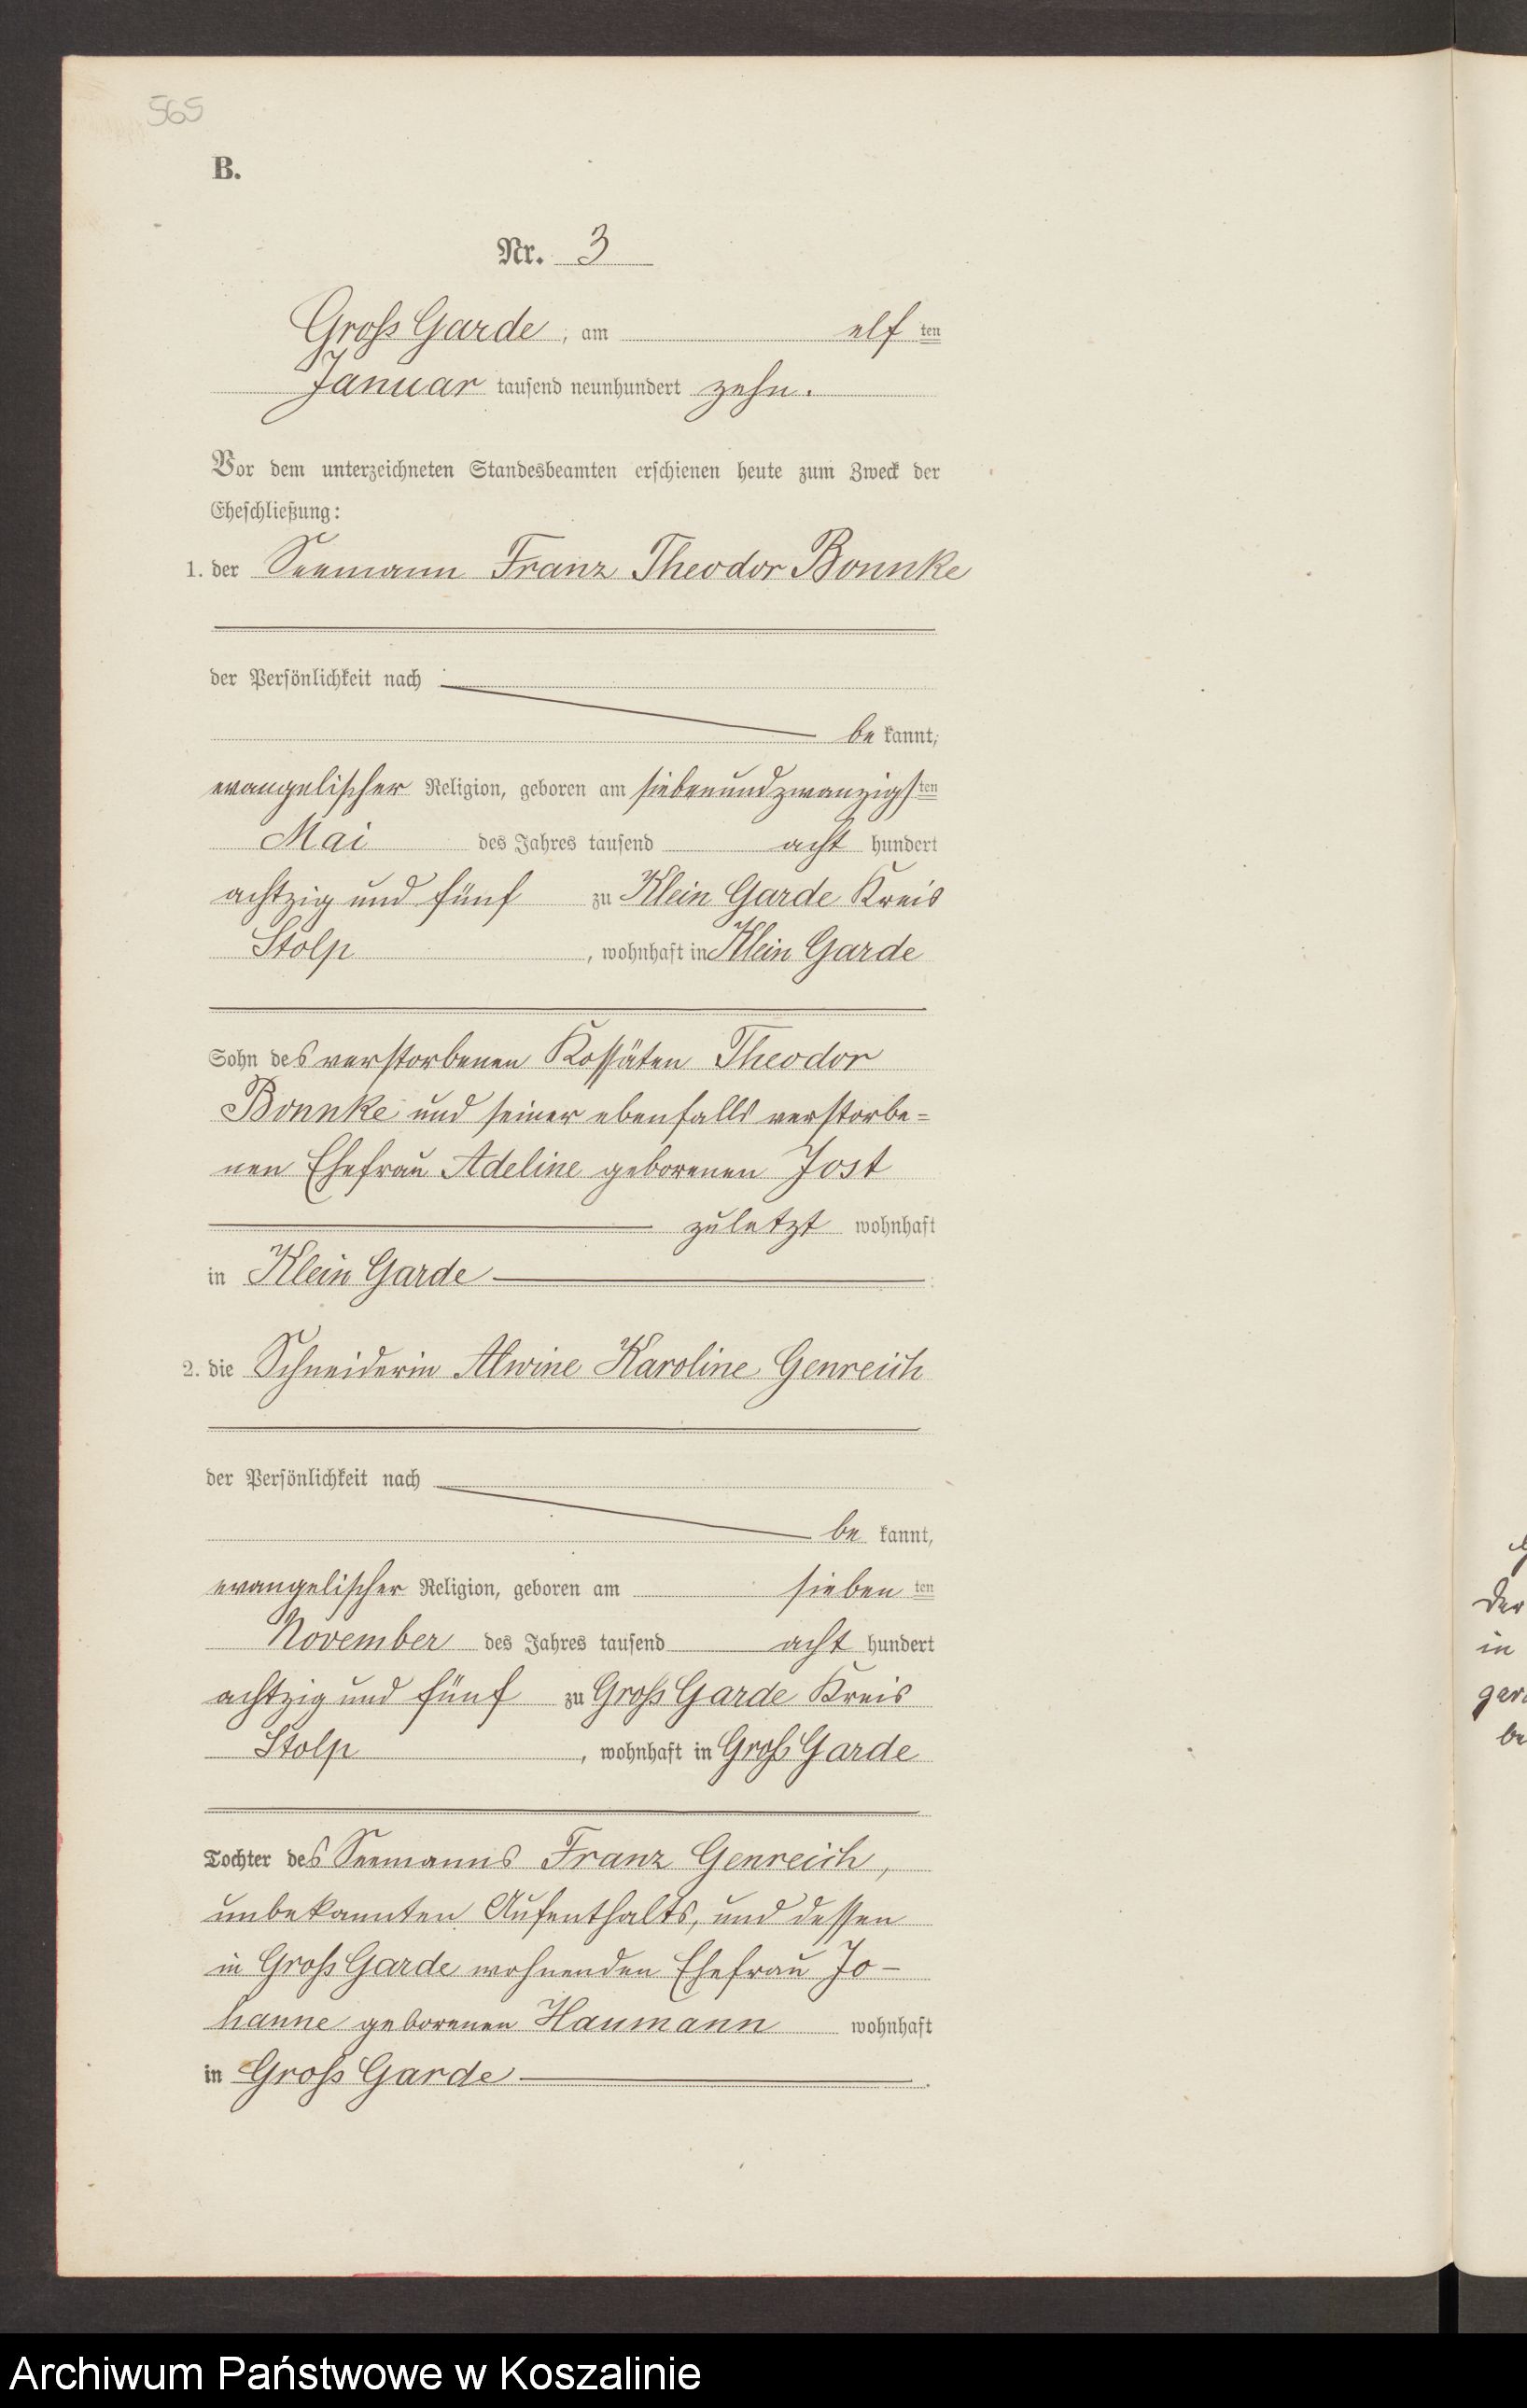 565
B.
Nr. 3
Gross Garde, am elf ten
Januar tausend neunhundert zehn.
Vor dem unterzeichneten Standesbeamten erschienen heute zum Zweck der
Eheschließung:
1. der Seemann Franz Theodor Bonnke
der Persönlichkeit nach
be kannt,
evangelischer Religion, geboren am siebenundzwanzigsten
Mai des Jahres tausend acht hundert
achtzig und fünf zu Klein Garde Kreis
Stolp, wohnhaft in Klein Garde
Sohn des verstorbenen Kossäten Theodor
Bonnke und seiner ebenfalls verstorbe=
nen Ehefrau Adeline geborenen Jost
zuletzt wohnhaft
in Klein Garde
2. die Schneiderin Alwine Karoline Genreich
der Persönlichkeit nach
be kannt,
evangelischer Religion, geboren am sieben ten
November des Jahres tausend acht hundert
achtzig und fünf zu Gross Garde Kreis
Stolp, wohnhaft in Gross Garde
Tochter des Seemanns Franz Genreich,
unbekannten Aufenthalts, und dessen
in Gross Garde wohnenden Ehefrau Jo-
hanne geborenen Haumann wohnhaft
in Gross Garde.
der
in
be
Archiwum Państwowe w Koszalinie